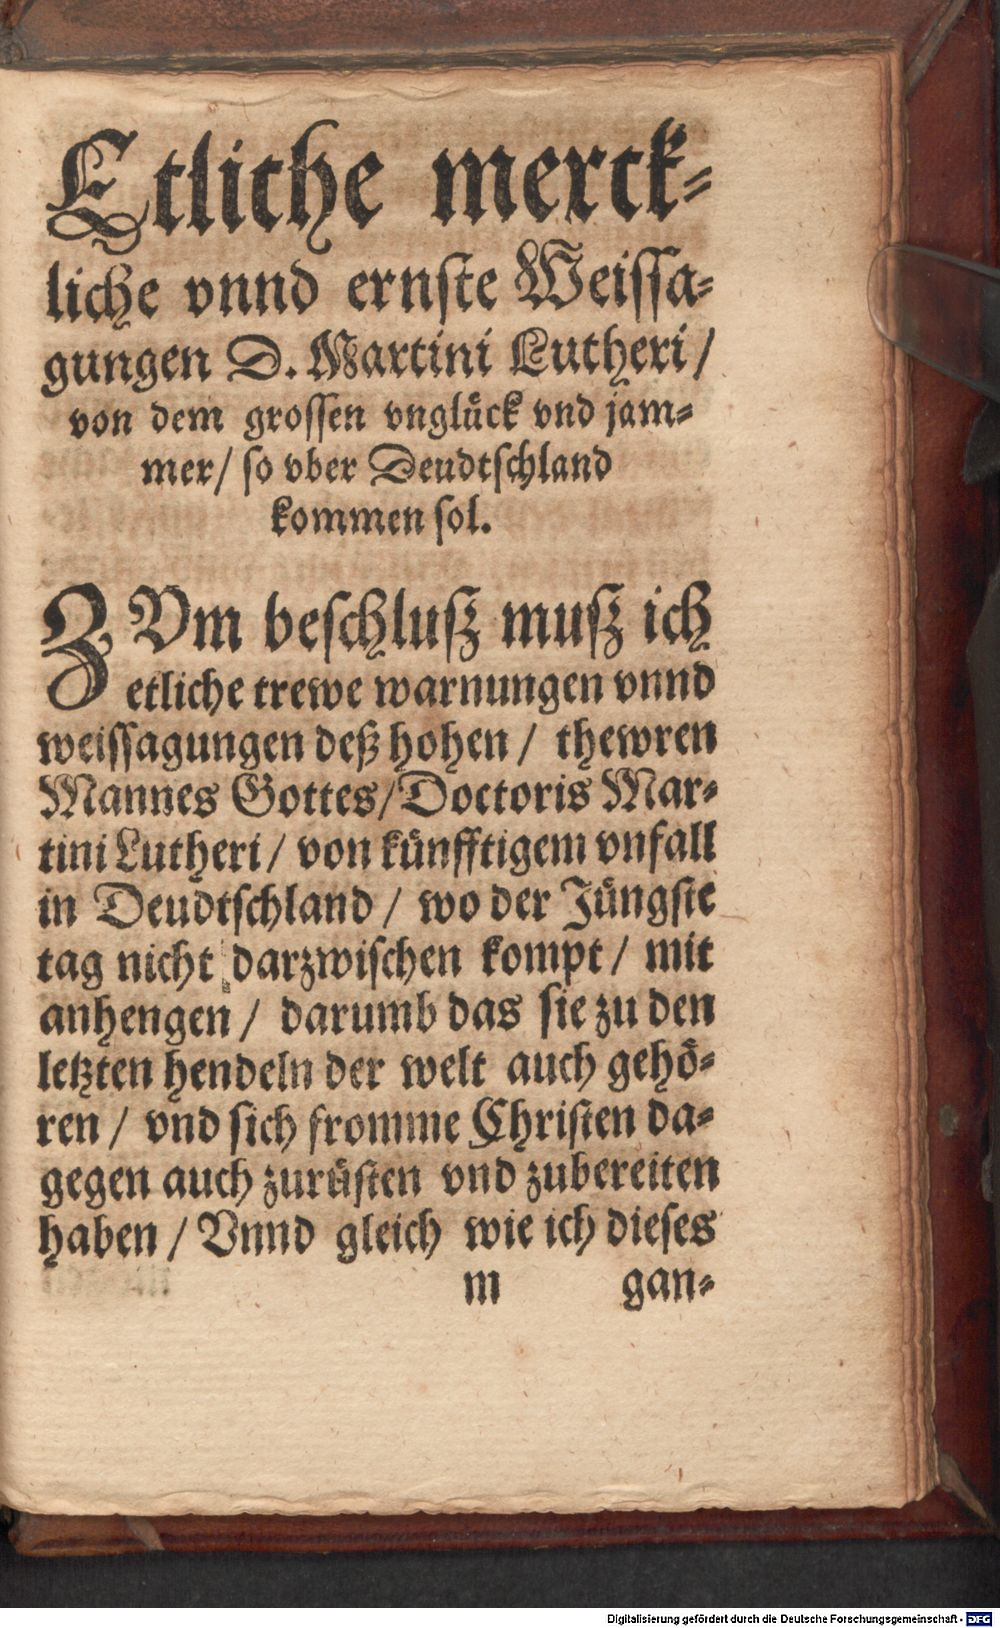 Etliche merck-
liche vnnd ernste Weissa-
gungen D. Martini Lutheri /
von dem grossen vnglück vnd jam-
mer / so vber Deudtschland
kommen sol.
ZVm beschluß muß ich
etliche trewe warnungen vnnd
weissagungen deß hohen / thewren
Mannes Gottes / Doctoris Mar-
tini Lutheri / von künfftigem vnfall
in Deudtschland / wo der Jüngste
tag nicht darzwischen kompt / mit
anhengen / darumb das sie zu den
letzten hendeln der welt auch gehö-
ren / vnd sich fromme Christen da-
gegen auch zurüsten vnd zubereiten
haben / Vnnd gleich wie ich dieses
m gan-
Digitalisierung gefördert durch die Deutsche Forschungsgemeinschaft - DFG